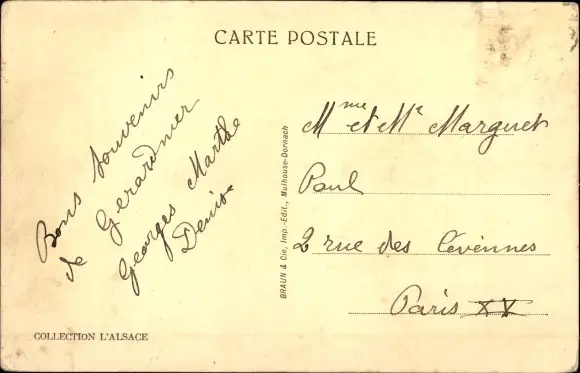 CARTE POSTALE
Bons souvenirs
de Gerardmer
Georges Marthe
Denise
BRAUN & Cie, Imp.-Edit., Mulhouse-Dornach
Mme et Mr Marguet
Paul
2 rue des Cévennes
Paris XV
COLLECTION L'ALSACE